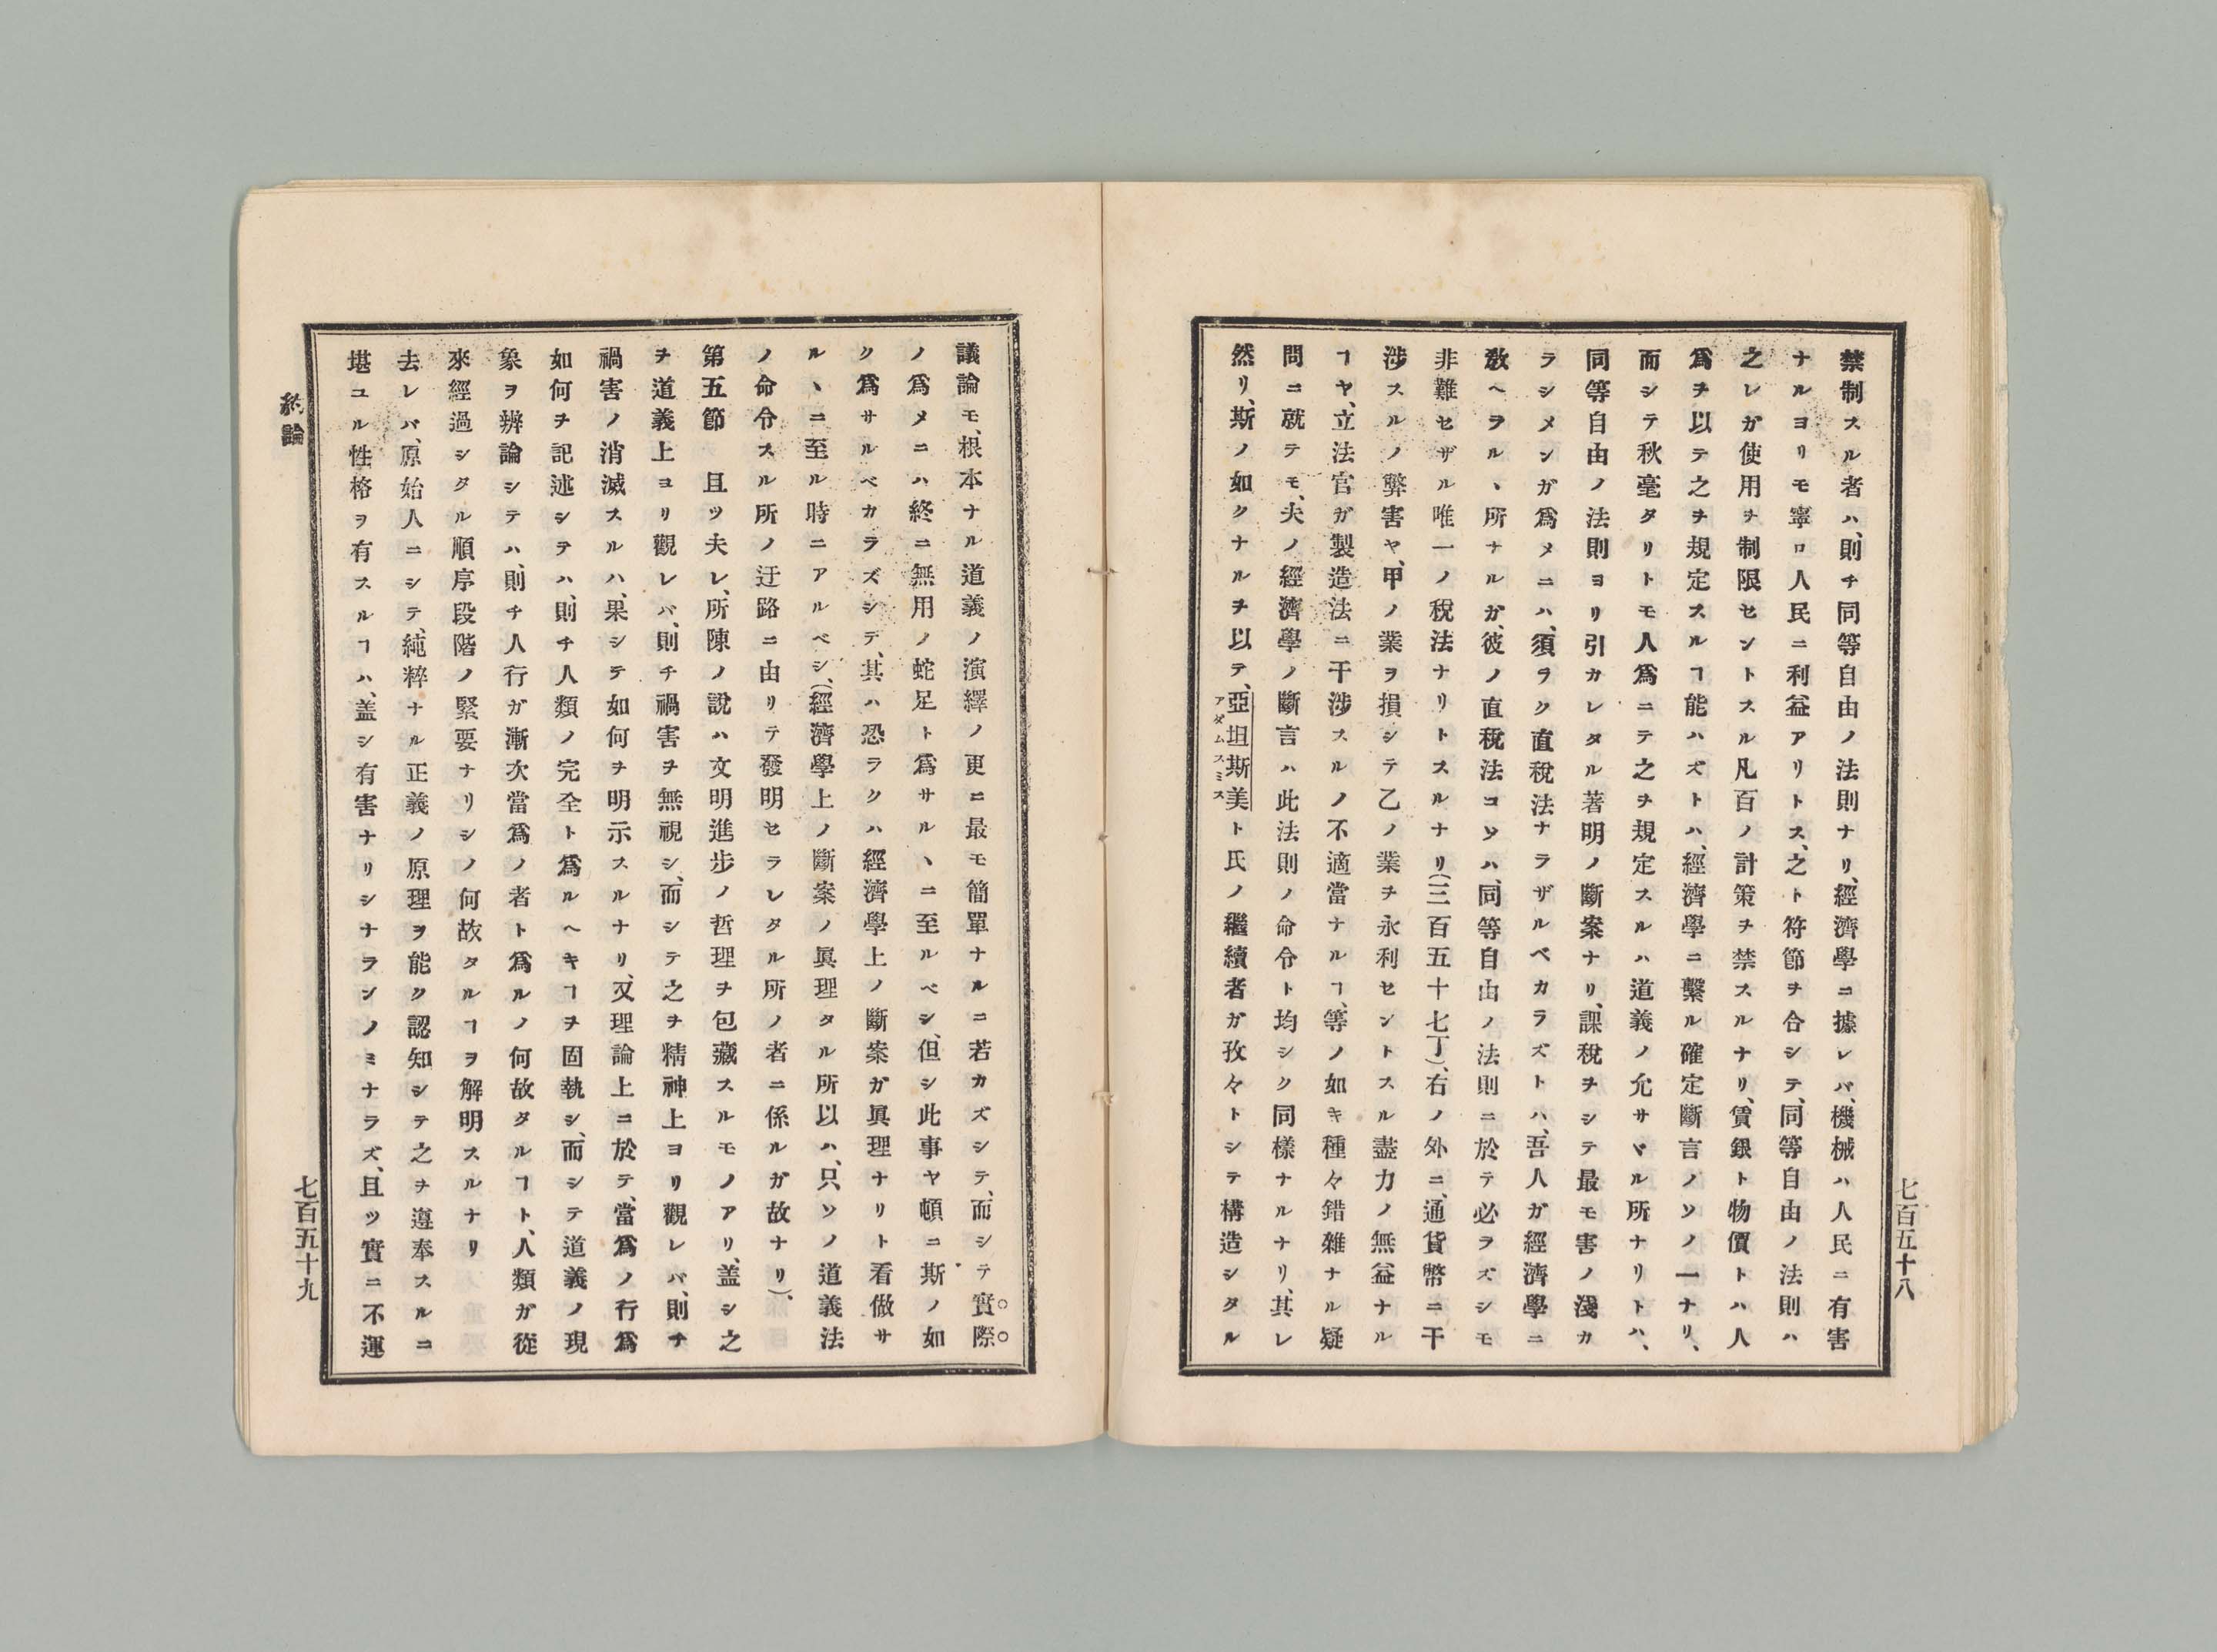 禁制スル者ハ、則チ同等自由ノ法則ナリ、經濟學ニ據レバ、機械ハ人民ニ有害
ナルヨリモ寧ロ人民ニ利益アリトス、之ト符節ヲ合シテ、同等自由ノ法則ハ
之レガ使用ヲ制限セントスル凡百ノ計策ヲ禁スルナリ、賃銀ト物價トハ人
爲ヲ以テ之ヲ規定スルヿ能ハズトハ、經濟學ニ繫ル確定斷言ノソノ一ナリ、
而シテ秋毫タリトモ人爲ニテ之ヲ規定スルハ道義ノ允サヾル所ナリトハ、
同等自由ノ法則ヨリ引カレタル著明ノ斷案ナリ、課稅ヲシテ最モ害ノ淺カ
ラシメンガ爲メニハ、須ラク直稅法ナラザルベカラズトハ、吾人ガ經濟學ニ
敎ヘヲルヽ所ナルガ、彼ノ直稅法コソハ、同等自由ノ法則ニ於テ必ヲズシモ
非難セザル唯一ノ稅法ナリトスルナリ(三百五十七丁)、右ノ外ニ、通貨幣ニ干
涉スルノ弊害ヤ、甲ノ業ヲ損シテ乙ノ業ヲ永利セントスル盡力ノ無益ナル
ヿヤ、立法官ガ製造法ニ干涉スルノ不適當ナルヿ、等ノ如キ種々錯雜ナル疑
問ニ就テモ、夫ノ經濟學ノ斷言ハ此法則ノ命令ト均シク同樣ナルナリ、其レ
然リ、斯ノ如クナルヲ以テ、亞坦斯美ト氏ノ繼續者ガ孜々トシテ構造シタル
アダムスミス
七百五十八
議論モ、根本ナル道義ノ演繹ノ更ニ最モ簡單ナルニ若カズシテ、而シテ實際
ノ爲メニハ終ニ無用ノ蛇足ト爲サルヽニ至ルベシ、但シ此事ヤ頓ニ斯ノ如
ク爲サルベカラズシテ、其ハ恐ラクハ經濟學上ノ斷案ガ眞理ナリト看做サ
ルヽニ至ル時ニアルベシ、(經濟學上ノ斷案ノ眞理タル所以ハ、只ソノ道義法
ノ命令スル所ノ迂路ニ由リテ發明セラレタル所ノ者ニ係ルガ故ナリ)、
第五節 且ツ夫レ、所陳ノ說ハ文明進步ノ哲理ヲ包藏スルモノアリ、蓋シ之
ヲ道義上ヨリ觀レバ、則チ禍害ヲ無視シ、而シテ之ヲ精神上ヨリ觀レバ、則チ
禍害ノ消滅スルハ、果シテ如何ヲ明示スルナリ、又理論上ニ於テ、當爲ノ行爲
如何ヲ記述シテハ、則チ人類ノ完全ト爲ルヘキヿヲ固執シ、而シテ道義ノ現
象ヲ辨論シテハ、則チ人行ガ漸次當爲ノ者ト爲ルノ何故タルヿト、人類ガ從
來經過シタル順序段階ノ緊要ナリシノ何故タルヿヲ解明スルナリ
去レバ、原始人ニシテ、純粹ナル正義ノ原理ヲ能ク認知シテ之ヲ遵奉スルニ
堪ユル性格ヲ有スルヿハ、蓋シ有害ナリシナラシノミナラズ、且ツ實ニ不運
終論
七百五十九